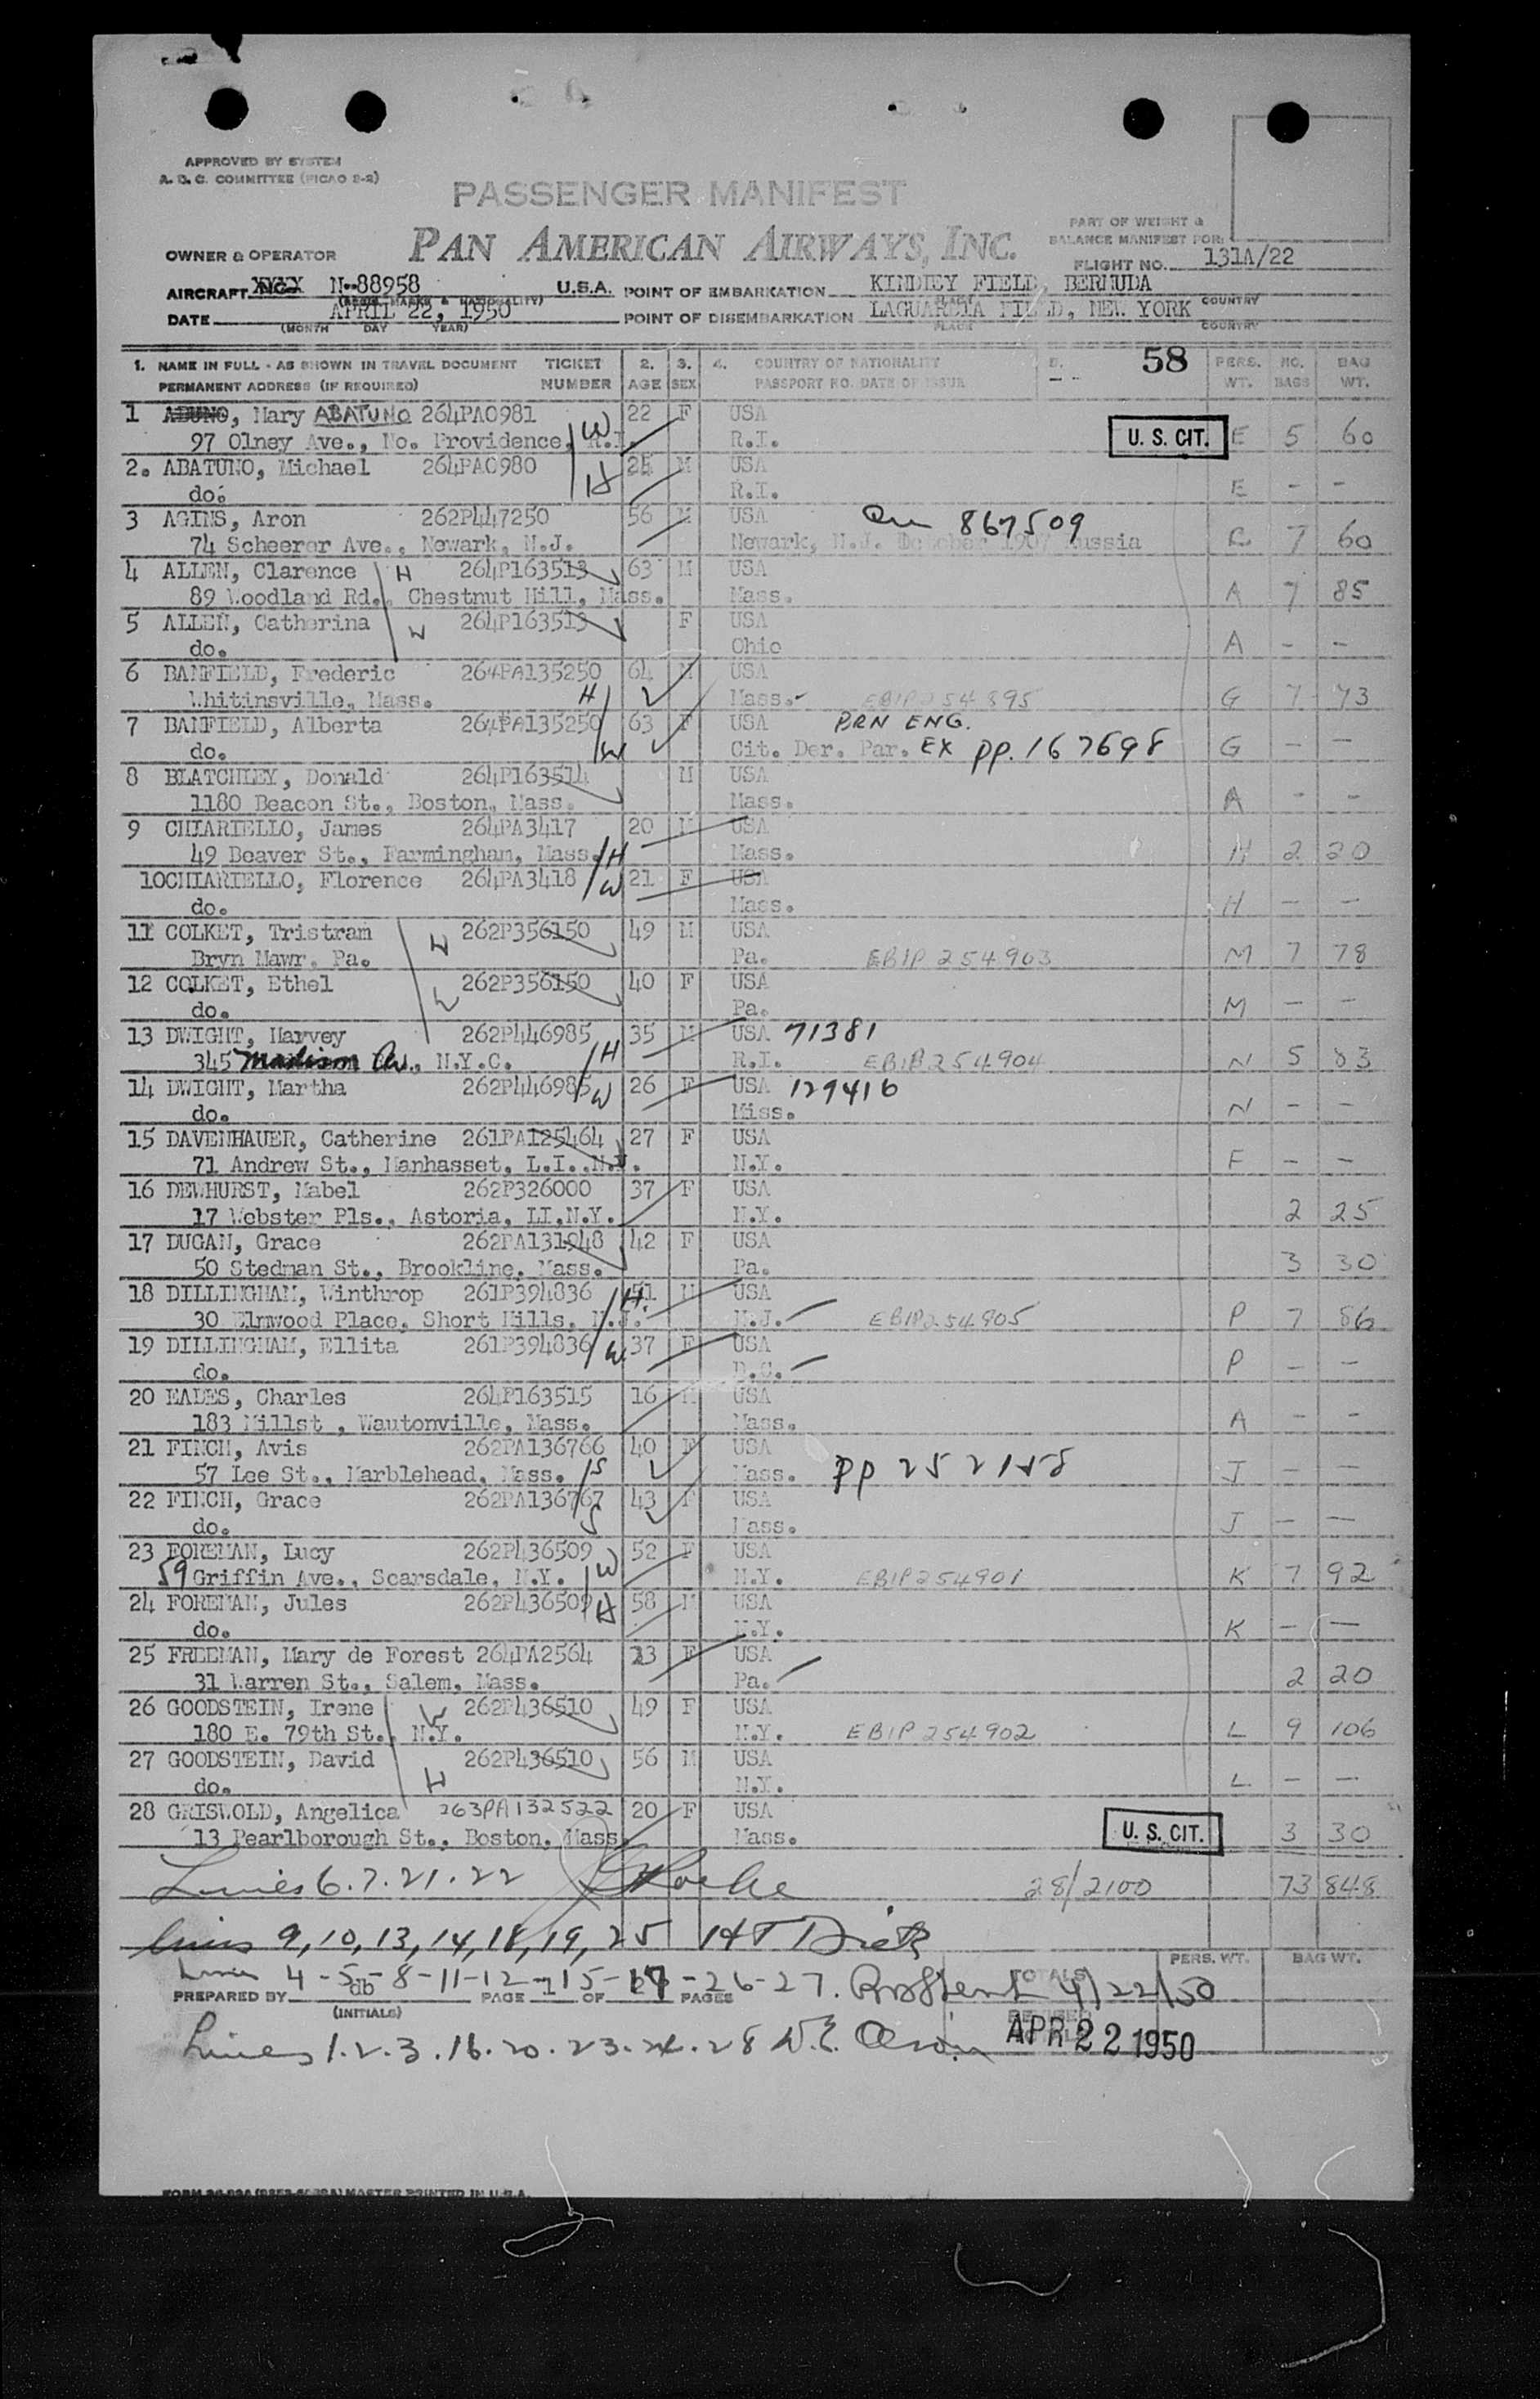 APPROVED BY SYSTEM
A. D. C. COMMITTEE (PICAO 2-2)
PASSENGER MANIFEST
PAN AMERICAN AIRWAYS, INC.
PART OF WEIGHT &
BALANCE MANIFEST FOR:
OWNER & OPERATOR
FLIGHT NO. 131A/22
AIRCRAFT N-88958 U.S.A. POINT OF EMBARKATION KINDLEY FIELD, BERMUDA
(REGIS. MARKS & NATIONALITY) PLACE COUNTRY
DATE APRIL 22, 1950 POINT OF DISEMBARKATION LAGUARDIA FIELD, NEW YORK
(MONTH DAY YEAR) PLACE COUNTRY
1. NAME IN FULL - AS SHOWN IN TRAVEL DOCUMENT TICKET 2. 3. 4. COUNTRY OF NATIONALITY 5. 58 PERS. NO. BAG
PERMANENT ADDRESS (IF REQUIRED) NUMBER AGE SEX PASSPORT NO. DATE OF ISSUE WT. BAGS WT.
1 Mary ABATUNO 264PA0981 W 22 F USA
97 Olney Ave., No. Providence, R.I. R.I. U. S. CIT. E 5 60
2. ABATUNO, Michael 264PA0980 H 25 M USA
do. R.I. E - -
3 AGINS, Aron 262P447250 56 M USA 867509
74 Scheerer Ave., Newark, N.J. Newark, N.J. October 1907 Russia 7 60
4 ALLEN, Clarence H 264P163513 63 M USA
89 Woodland Rd., Chestnut Hill, Mass. Mass. A 7 85
5 ALLEN, Catherina W 264P163513 F USA
do. Ohio A - -
6 BANFIELD, Frederic 264PA135250 64 M USA
Whitinsville, Mass. H Mass. EBIP254895 G 7 73
7 BANFIELD, Alberta 264PA135250 63 F USA BRN ENG.
do. W Cit. Der. Par. EX pp. 167698 G - -
8 BLATCHLEY, Donald 264P163514 M USA
1180 Beacon St., Boston, Mass. Mass. A - -
9 CHIARIELLO, James 264PA3417 20 M USA
49 Beaver St., Farmingham, Mass. H Mass. H 2 20
10 CHIARIELLO, Florence 264PA3418 W 21 F USA
do. Mass. H - -
11 COLKET, Tristram H 262P356150 49 M USA
Bryn Mawr, Pa. Pa. EBIP 254903 M 7 78
12 COLKET, Ethel W 262P356150 40 F USA
do. Pa. M - -
13 DWIGHT, Harvey 262P446985 35 M USA 71381
345 Madison Av., N.Y.C. H R.I. EBIP254904 N 5 83
14 DWIGHT, Martha 262P446985 W 26 F USA 129416
do. Miss. N - -
15 DAVENHAUER, Catherine 261PA125464 27 F USA
71 Andrew St., Manhasset, L.I. N.Y. N.Y. F - -
16 DEWHURST, Mabel 262P326000 37 F USA
17 Webster Pls., Astoria, LI,N.Y. N.Y. 2 25
17 DUGAN, Grace 262PA131948 42 F USA
50 Stedman St., Brookline, Mass. Pa. 3 30
18 DILLINGHAM, Winthrop 261P394836 H. 51 M USA
30 Elmwood Place, Short Hills, N.J. N.J. EBIP254905 P 7 86
19 DILLINGHAM, Ellita 261P394836 W 37 F USA
do. D.C. P - -
20 EADES, Charles 264P163515 16 M USA
183 Millst , Wautonville, Mass. Mass. A - -
21 FINCH, Avis 262PA136766 40 F USA
57 Lee St., Marblehead, Mass. S Mass. PP 252158 J - -
22 FINCH, Grace 262PA136767 43 F USA
do. S Mass. J - -
23 FOREMAN, Lucy 262P436509 W 52 F USA
59 Griffin Ave., Scarsdale, N.Y. N.Y. EBIP254901 K 7 92
24 FOREMAN, Jules 262P436509 H 58 M USA
do. N.Y. K - -
25 FREEMAN, Mary de Forest 264PA2564 23 F USA
31 Warren St., Salem, Mass. Pa. 2 20
26 GOODSTEIN, Irene W 262P436510 49 F USA
180 E. 79th St., N.Y. N.Y. EBIP254902 L 9 106
27 GOODSTEIN, David 262P436510 56 M USA
do. H N.Y. L - -
28 GRISWOLD, Angelica 263PA132522 20 F USA
13 Pearlborough St., Boston, Mass. Mass. U. S. CIT. 3 30
Lines 6.7.21.22 28/2100 73 848
lines 9,10,13,14,18,19,25
PERS. WT. BAG WT.
Lines 4-5-8-11-12-15-17-26-27. 4/22/50
TOTALS
PREPARED BY db PAGE 1 OF PAGES
(INITIALS)
Lines 1.2.3.16.20.23.24.28 APR 22 1950